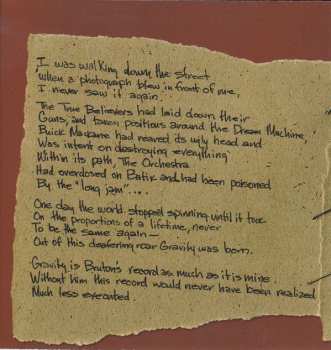 I was walking down the street
when a photograph blew in front of me,
I never saw it again.
The True Believers had laid down their
Guns, and taken positions around the Dream Machine,
Buick Makane had reared its ugly head and
Was intent on destroying "everything"
Within its path, The Orchestra
Had overdosed on Batik and had been poisoned
By the "long jam"...
One day the world stopped spinning until it took
On the proportions of a lifetime, never
To be the same again —
Out of this deafening roar Gravity was born.
Gravity is Bruton's record as much as it is mine.
Without him this record would never have been realized
Much less executed.